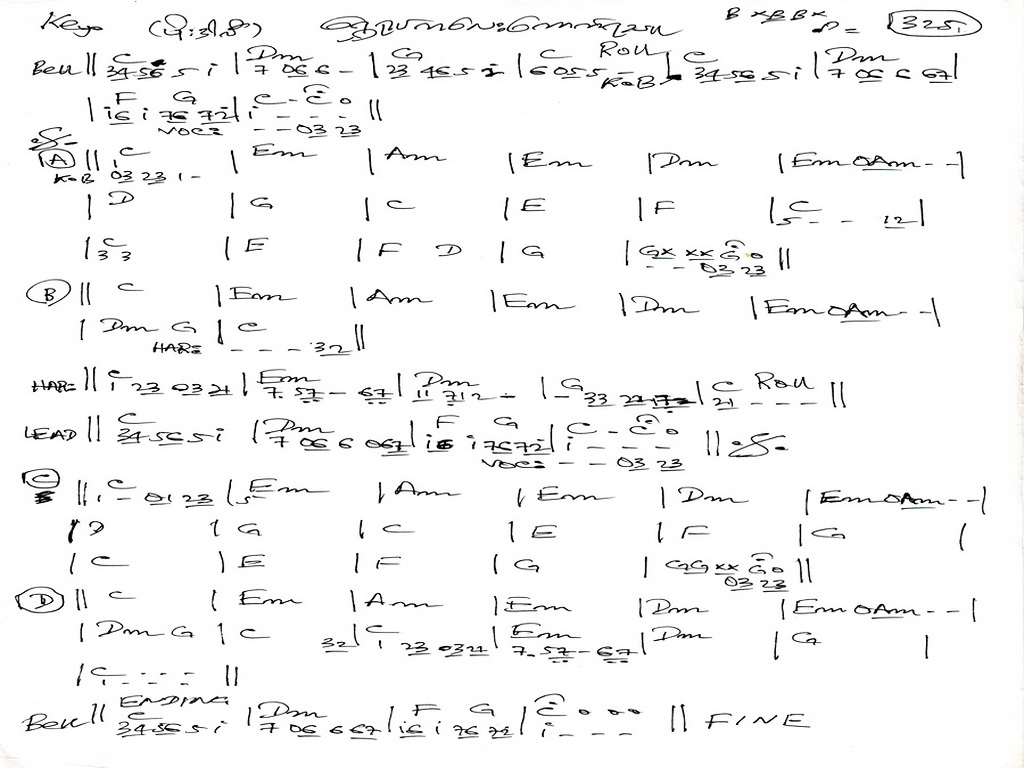 Key. B××BB× ♪ = 325,
Bell || C 34565 i | Dm 7 066 - | G 23 465 2 | C Roll 6 055 - KoB | C 34565 i | Dm 7 066 67 |
| F G i6 i 76 72 | C - C i - - - || VOC: - - 03 23
A || C | Em | Am | Em | Dm | Em oAm - - |
KoB 03 23 1 -
| D | G | C | E | F | C 5 - - - 12 |
| C 3 3 | E | F D | G | G× ×× G o - - 03 23 ||
B || C | Em | Am | Em | Dm | Em oAm - - |
| Dm G | C - - - - 32 ||
|| C i 23 0321 | Em 7. 57 - 67 | Dm 11 712 - | G - 33 | C Roll 21 - - - ||
LEAD || C 34565 i | Dm 7 066 067 | F G i6 i 7672 | C - C o i - - - ||
VOC: - - 03 23
C || C 1 - 01 23 | Em 5 - | Am | Em | Dm | Em oAm - - |
| D | G | C | E | F | G |
| C | E | F | G | GG ×× G o 03 23 ||
D || C | Em | Am | Em | Dm | Em oAm - - |
| Dm G | C 32 | C i 23 0321 | Em 7. 57 - 67 | Dm | G |
| C i - - - ||
ENDING
Bell || C 34565 i | Dm 7 066 67 | F G i6 i 76 72 | C o o o i - - - || FINE